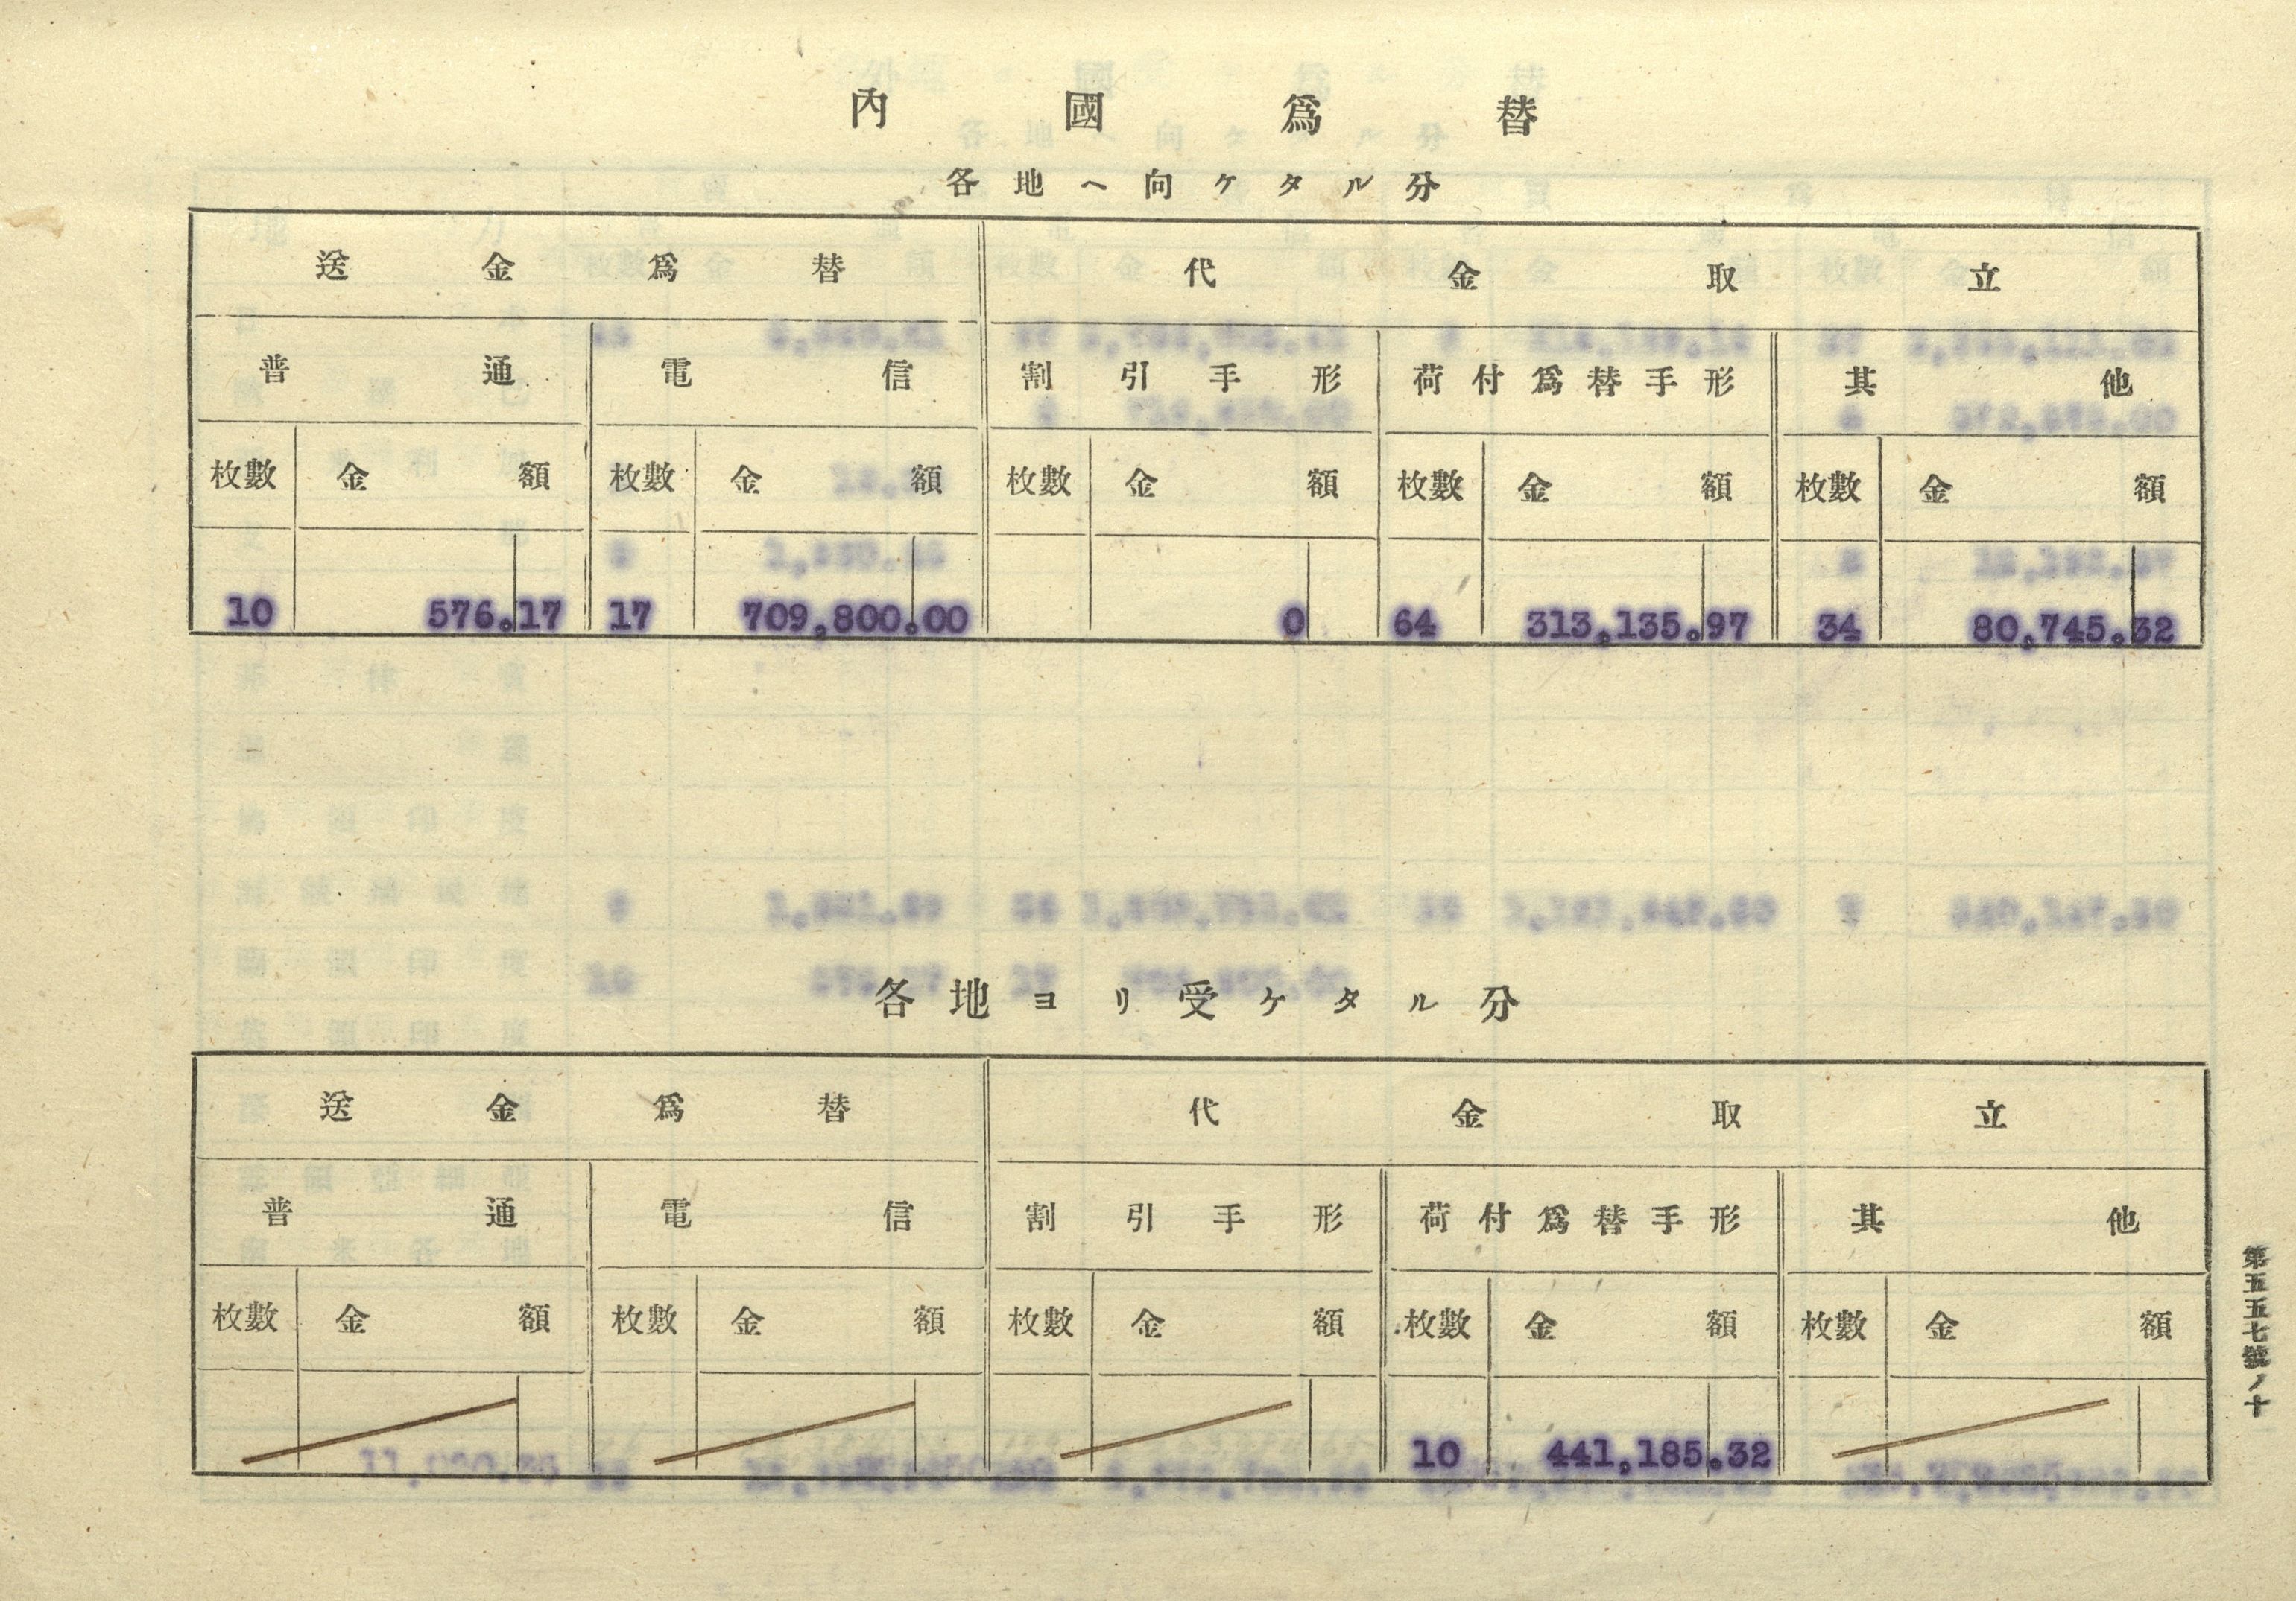 內國爲替
各地ヘ向ケタル分
送金爲替 代金取立
普通 電信 割引手形 荷付爲替手形 其他
枚數 金額 枚數 金額 枚數 金額 枚數 金額 枚數 金額
10 576.17 17 709,800.00 0 64 313,135.97 34 80,745.32
各地ヨリ受ケタル分
送金爲替 代金取立
普通 電信 割引手形 荷付爲替手形 其他
枚數 金額 枚數 金額 枚數 金額 枚數 金額 枚數 金額
10 441,185.32
第五五七號ノ十